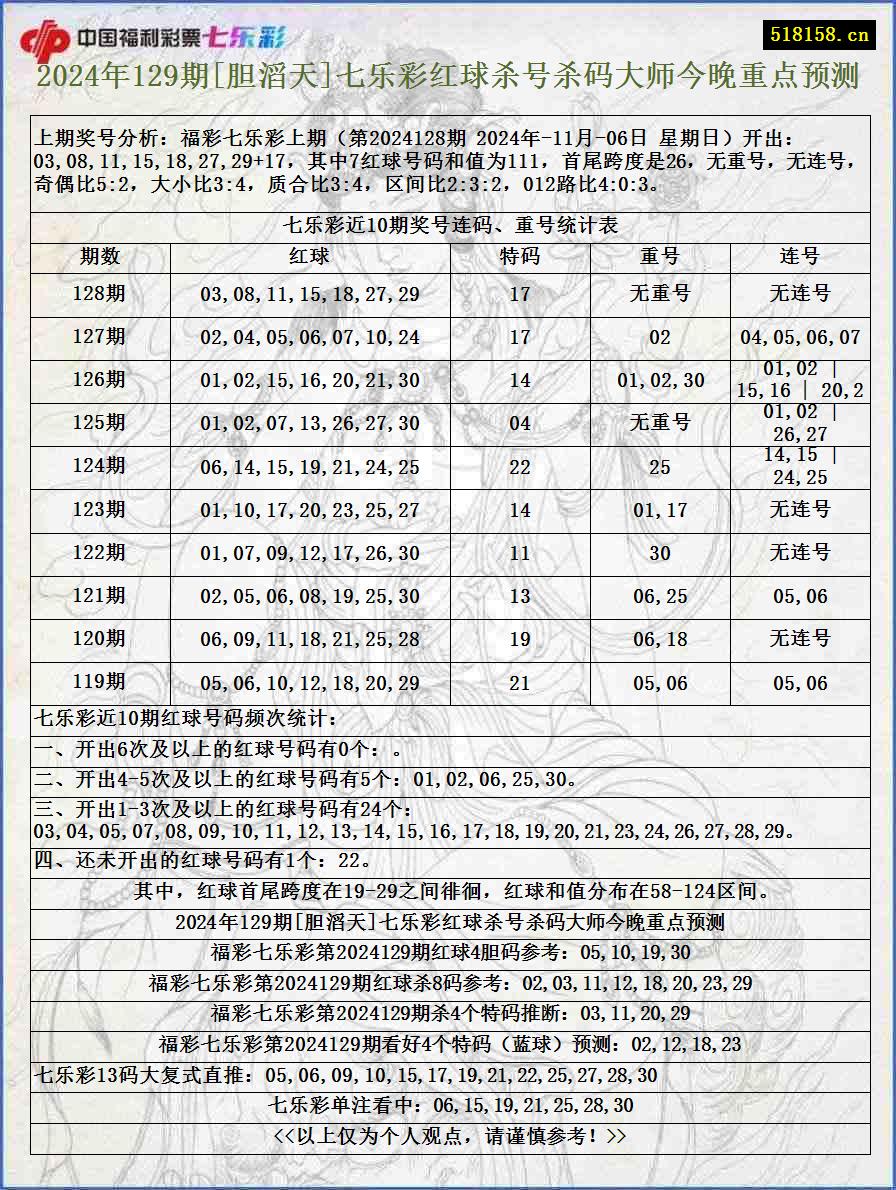 中国福利彩票七乐彩
518158.cn
2024年129期[胆滔天]七乐彩红球杀号杀码大师今晚重点预测
上期奖号分析：福彩七乐彩上期（第2024128期 2024年-11月-06日 星期日）开出：
03,08,11,15,18,27,29+17，其中7红球号码和值为111，首尾跨度是26，无重号，无连号，
奇偶比5:2，大小比3:4，质合比3:4，区间比2:3:2，012路比4:0:3。
七乐彩近10期奖号连码、重号统计表
期数 红球 特码 重号 连号
128期 03,08,11,15,18,27,29 17 无重号 无连号
127期 02,04,05,06,07,10,24 17 02 04,05,06,07
126期 01,02,15,16,20,21,30 14 01,02,30 01,02 | 15,16 | 20,2
125期 01,02,07,13,26,27,30 04 无重号 01,02 | 26,27
124期 06,14,15,19,21,24,25 22 25 14,15 | 24,25
123期 01,10,17,20,23,25,27 14 01,17 无连号
122期 01,07,09,12,17,26,30 11 30 无连号
121期 02,05,06,08,19,25,30 13 06,25 05,06
120期 06,09,11,18,21,25,28 19 06,18 无连号
119期 05,06,10,12,18,20,29 21 05,06 05,06
七乐彩近10期红球号码频次统计：
一、开出6次及以上的红球号码有0个：。
二、开出4-5次及以上的红球号码有5个：01,02,06,25,30。
三、开出1-3次及以上的红球号码有24个：
03,04,05,07,08,09,10,11,12,13,14,15,16,17,18,19,20,21,23,24,26,27,28,29。
四、还未开出的红球号码有1个：22。
其中，红球首尾跨度在19-29之间徘徊，红球和值分布在58-124区间。
2024年129期[胆滔天]七乐彩红球杀号杀码大师今晚重点预测
福彩七乐彩第2024129期红球4胆码参考：05,10,19,30
福彩七乐彩第2024129期红球杀8码参考：02,03,11,12,18,20,23,29
福彩七乐彩第2024129期杀4个特码推断：03,11,20,29
福彩七乐彩第2024129期看好4个特码（蓝球）预测：02,12,18,23
七乐彩13码大复式直推：05,06,09,10,15,17,19,21,22,25,27,28,30
七乐彩单注看中：06,15,19,21,25,28,30
<<以上仅为个人观点，请谨慎参考！>>